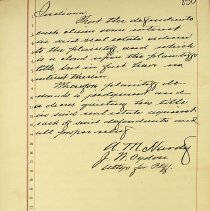 Indiana.
That the defendants
each claim some interest
in said real estate adverse
to the plaintiff and which
is a cloud upon the plaintiff's
title but in fact have no
interest therein.
Wherefore plaintiff de-
mands judgment and
a decree quieting his title
in said real estate against
each of said defendants and
all proper relief.
J. W.
Attys for Plff.